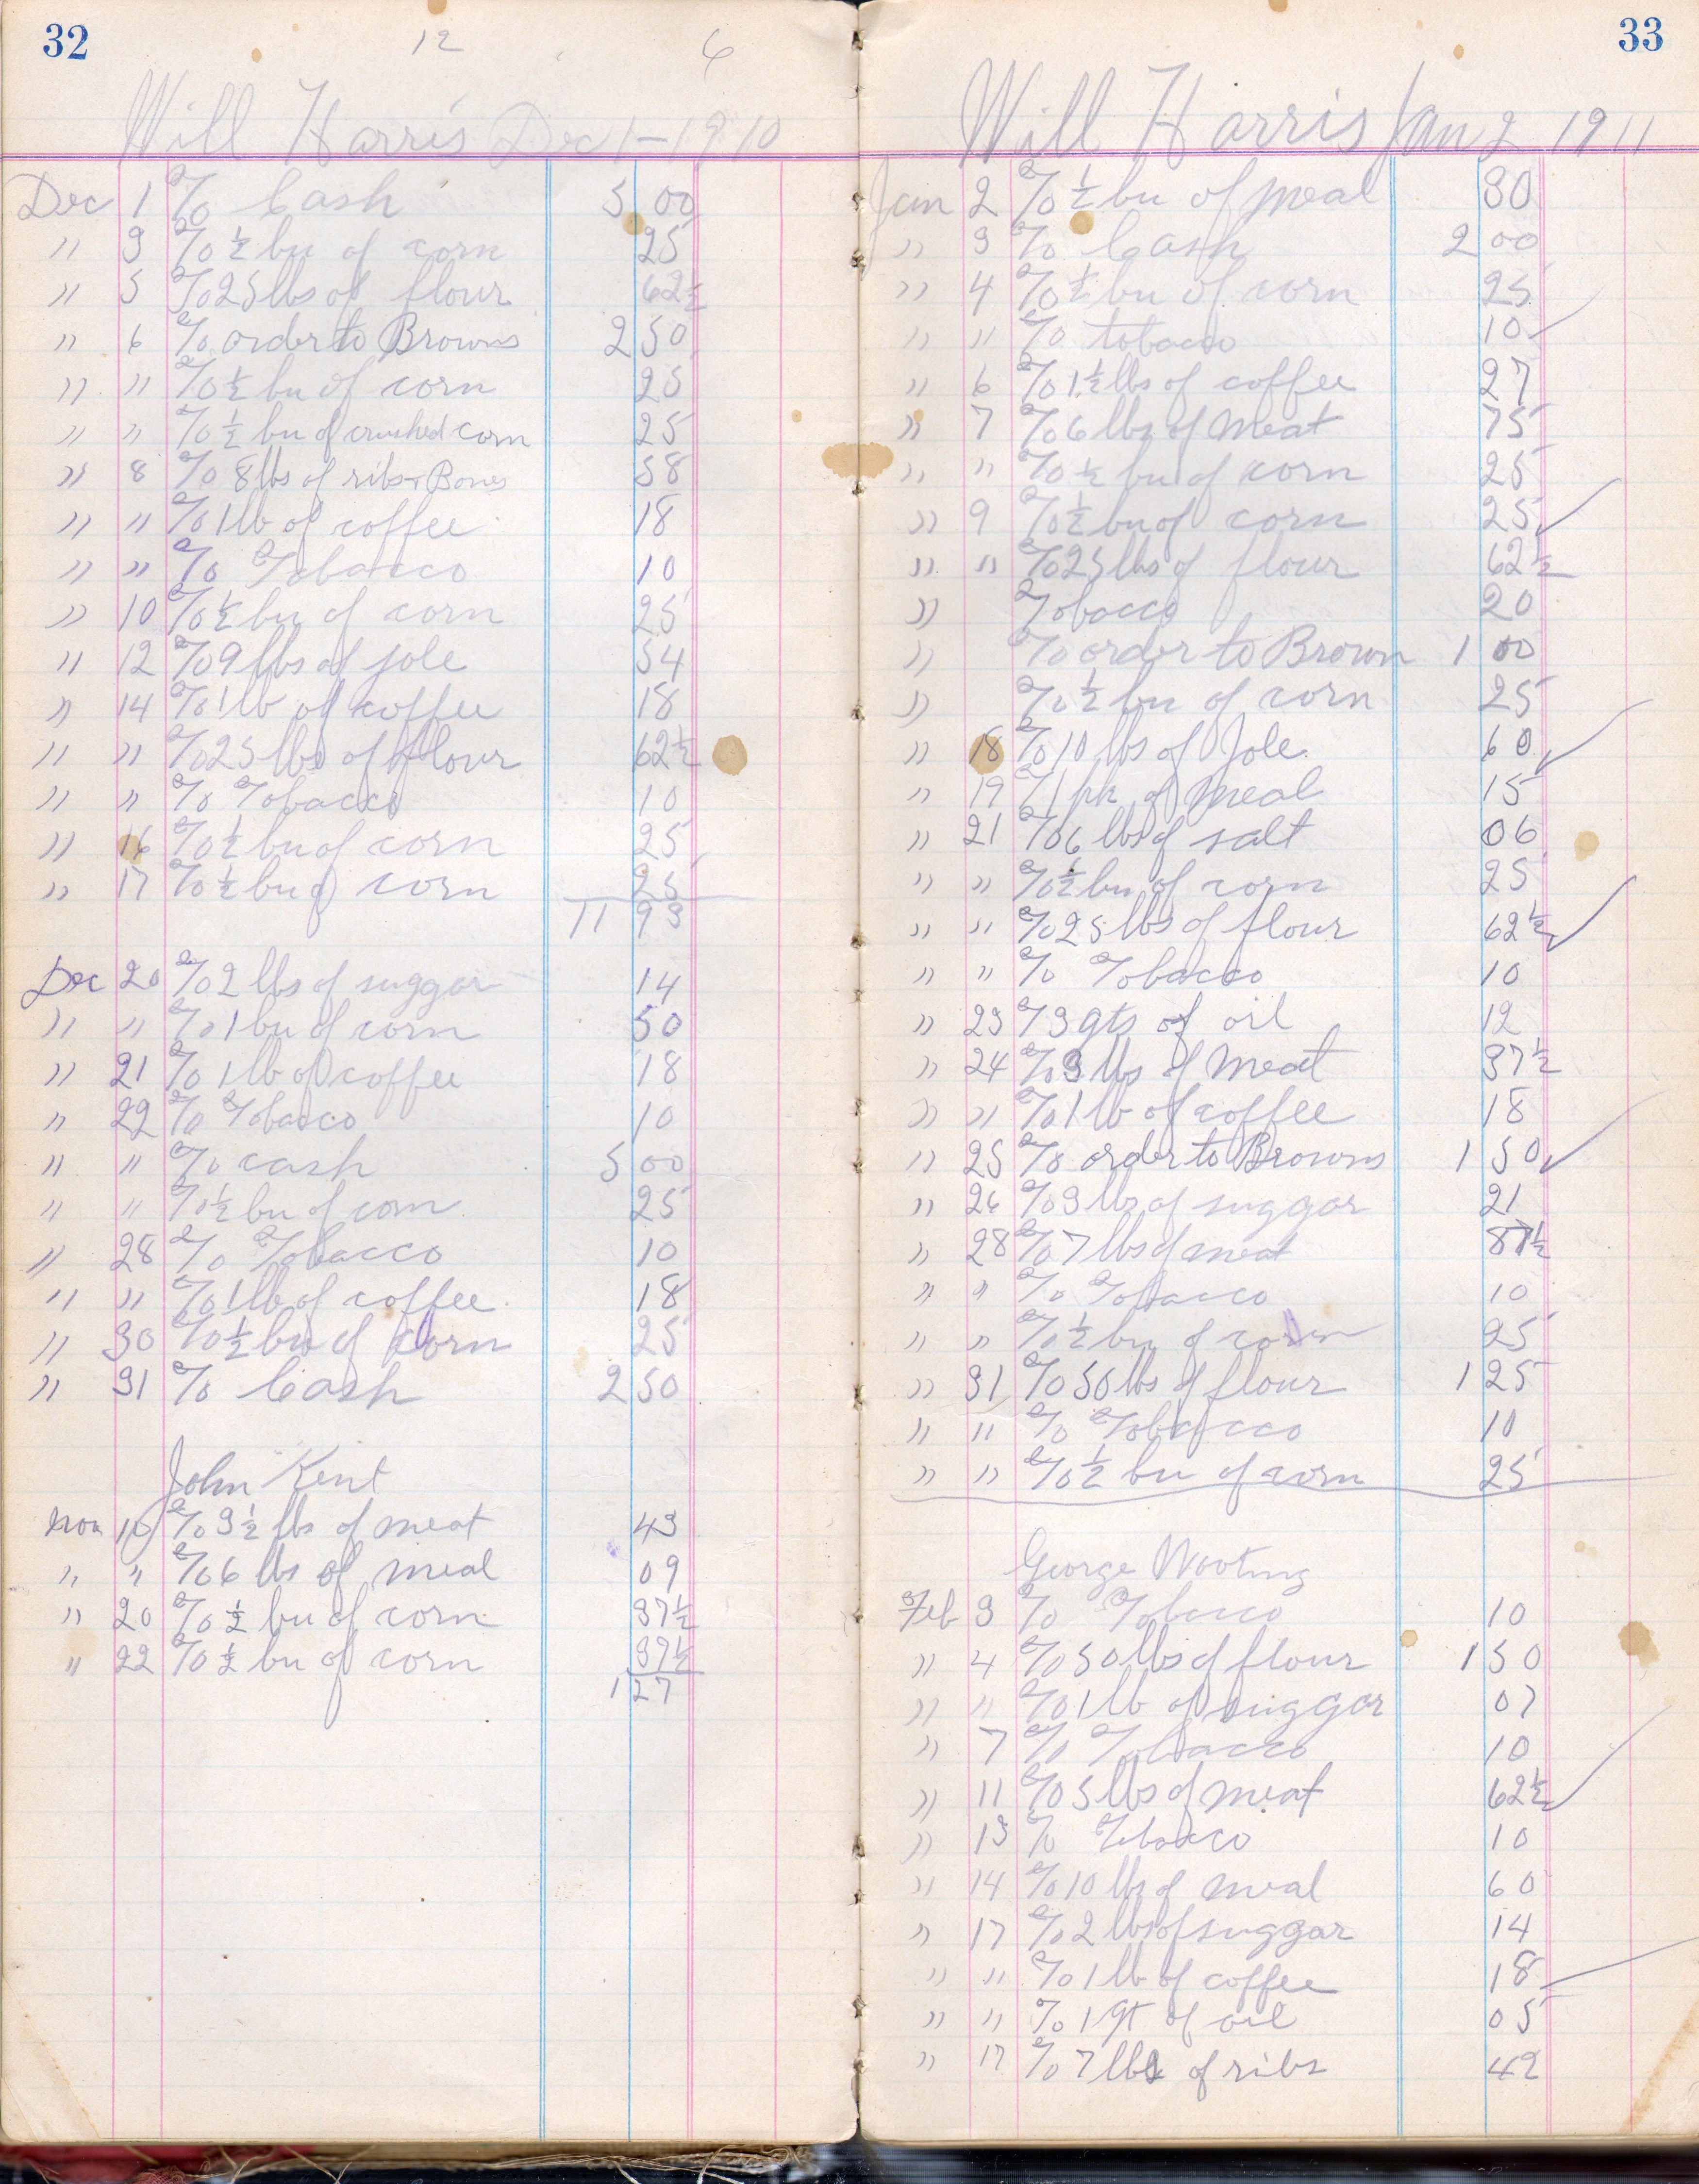 32
12 6
Will Harris Dec 1-1910
Dec 1 % Cash 5 00
" 3 % ½ bu of corn 25
" 5 % 25 lbs of flour 62½
" 6 % order to Browns 2 50
" " % ½ bu of corn 25
" " % ½ bu of crushed corn 25
" 8 % 8 lbs of ribs + Bones 58
" " % 1 lb of coffee 18
" " % Tobacco 10
" 10 % ½ bu of corn 25
" 12 % 9 lbs of jole 54
" 14 % 1 lb of coffee 18
" " % 25 lbs of flour 62½
" " % Tobacco 10
" 16 % ½ bu of corn 25
" 17 % ½ bu of corn 25
11 93
Dec 20 % 2 lbs of suggar 14
" " % 1 bu of corn 50
" 21 % 1 lb of coffee 18
" 22 % Tobacco 10
" " % cash 5 00
" " % ½ bu of corn 25
" 28 % Tobacco 10
" " % 1 lb of coffee 18
" 30 % ½ bu of corn 25
" 31 % Cash 2 50
John Kent
Nov % 3½ lbs of meat 43
" " % 6 lbs of meal 09
" 20 % ½ bu of corn 37½
" 22 % ½ bu of corn 37½
1 27
33
Will Harris Jan 2 1911
Jan 2 % ½ bu of meal 30
" 3 % Cash 2 00
" 4 % ½ bu of corn 25
" " % tobacco 10
" 6 % 1½ lbs of coffee 27
" 7 % 6 lbs of meat 75
" " % ½ bu of corn 25
" 9 % ½ bu of corn 25
" " % 25 lbs of flour 62½
" Tobacco 20
" % order to Brown 1 00
" % ½ bu of corn 25
" 18 % 10 lbs of Jole 60
" 19 % 1 pk of meal 15
" 21 % 6 lbs of salt 06
" " % ½ bu of corn 25
" " % 25 lbs of flour 62½
" " % Tobacco 10
" 23 % 3 qts of oil 12
" 24 % 3 lbs of Meat 37½
" " % 1 lb of coffee 18
" 25 % order to Browns 1 50
" 26 % 3 lbs of suggar 21
" 28 % 7 lbs of meat 87½
" " % Tobacco 10
" " % ½ bu of corn 25
" 31 % 50 lbs of flour 1 25
" " % Tobacco 10
" " % ½ bu of corn 25
George Wooting
Feb 3 % Tobacco 10
" 4 % 50 lbs of flour 1 50
" " % 1 lb of suggar 07
" 7 % Tobacco 10
" 11 % 5 lbs of meat 62½
" 13 % Tobacco 10
" 14 % 10 lbs of meal 60
" 17 % 2 lbs of suggar 14
" " % 1 lb of coffee 18
" " % 1 qt of oil 05
" 17 % 7 lbs of ribs 42